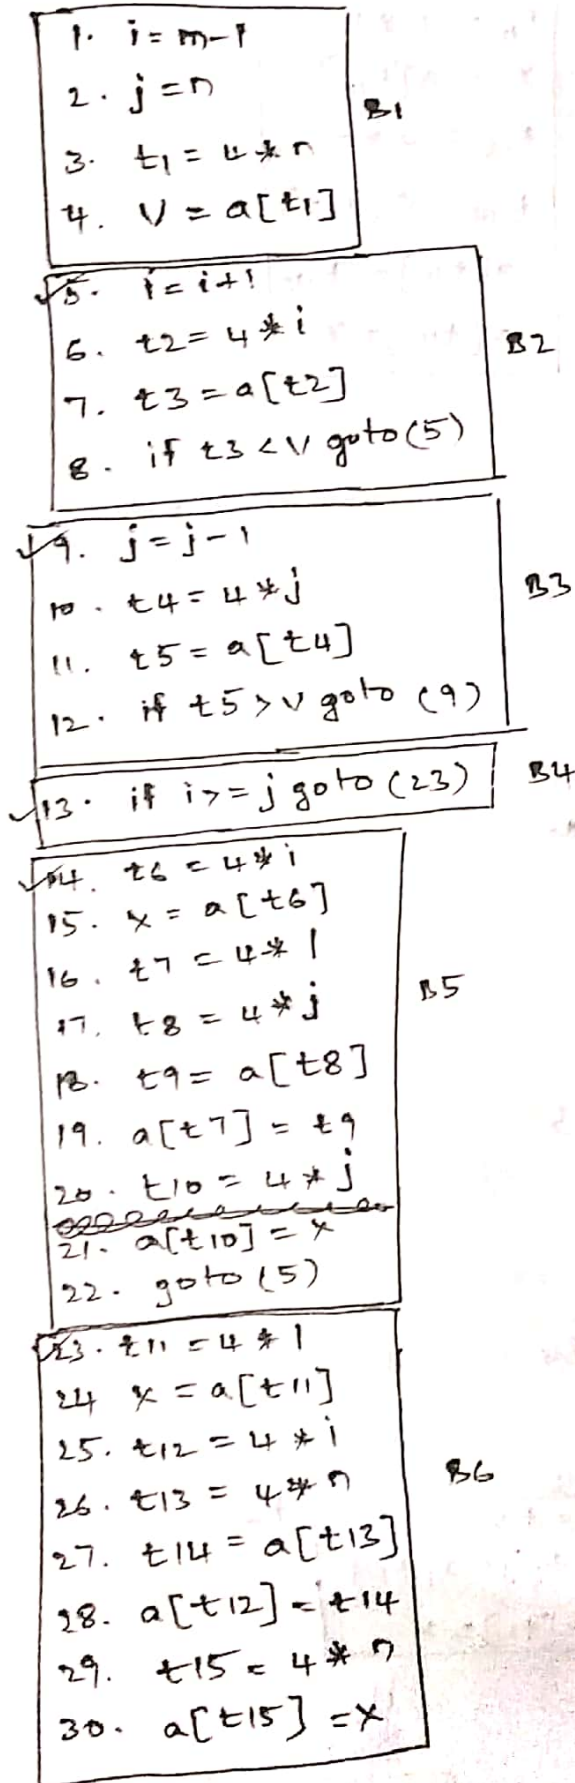 1. i = m-1
2. j = n
3. t1 = 4 * n
4. V = a[t1]
B1
5. i = i+1
6. t2 = 4 * i
7. t3 = a[t2]
8. if t3 < V goto (5)
B2
9. j = j-1
10. t4 = 4 * j
11. t5 = a[t4]
12. if t5 > v goto (9)
B3
13. if i >= j goto (23)
B4
14. t6 = 4 * i
15. x = a[t6]
16. t7 = 4 * 1
17. t8 = 4 * j
18. t9 = a[t8]
19. a[t7] = t9
20. t10 = 4 * j
21. a[t10] = x
22. goto (5)
B5
23. t11 = 4 * 1
24 x = a[t11]
25. t12 = 4 * i
26. t13 = 4 * n
27. t14 = a[t13]
28. a[t12] = t14
29. t15 = 4 * n
30. a[t15] = x
B6